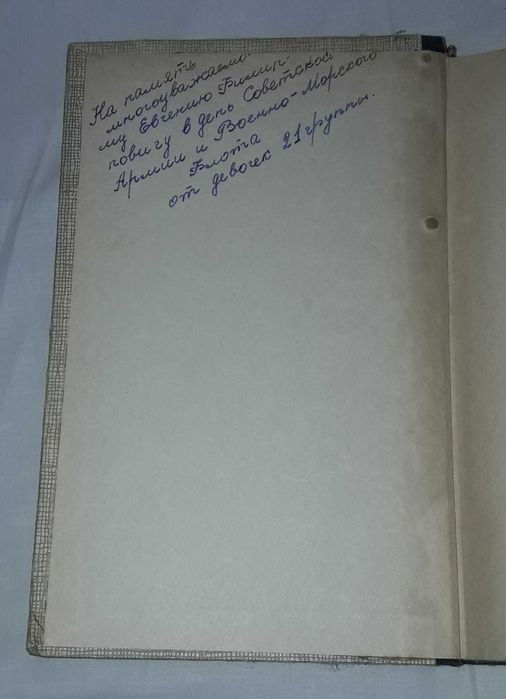 На память
многоуважаемо-
му Евгению Филип-
повичу в день Советской
Армии и Военно-Морского
Флота
от девочек 21 группы.